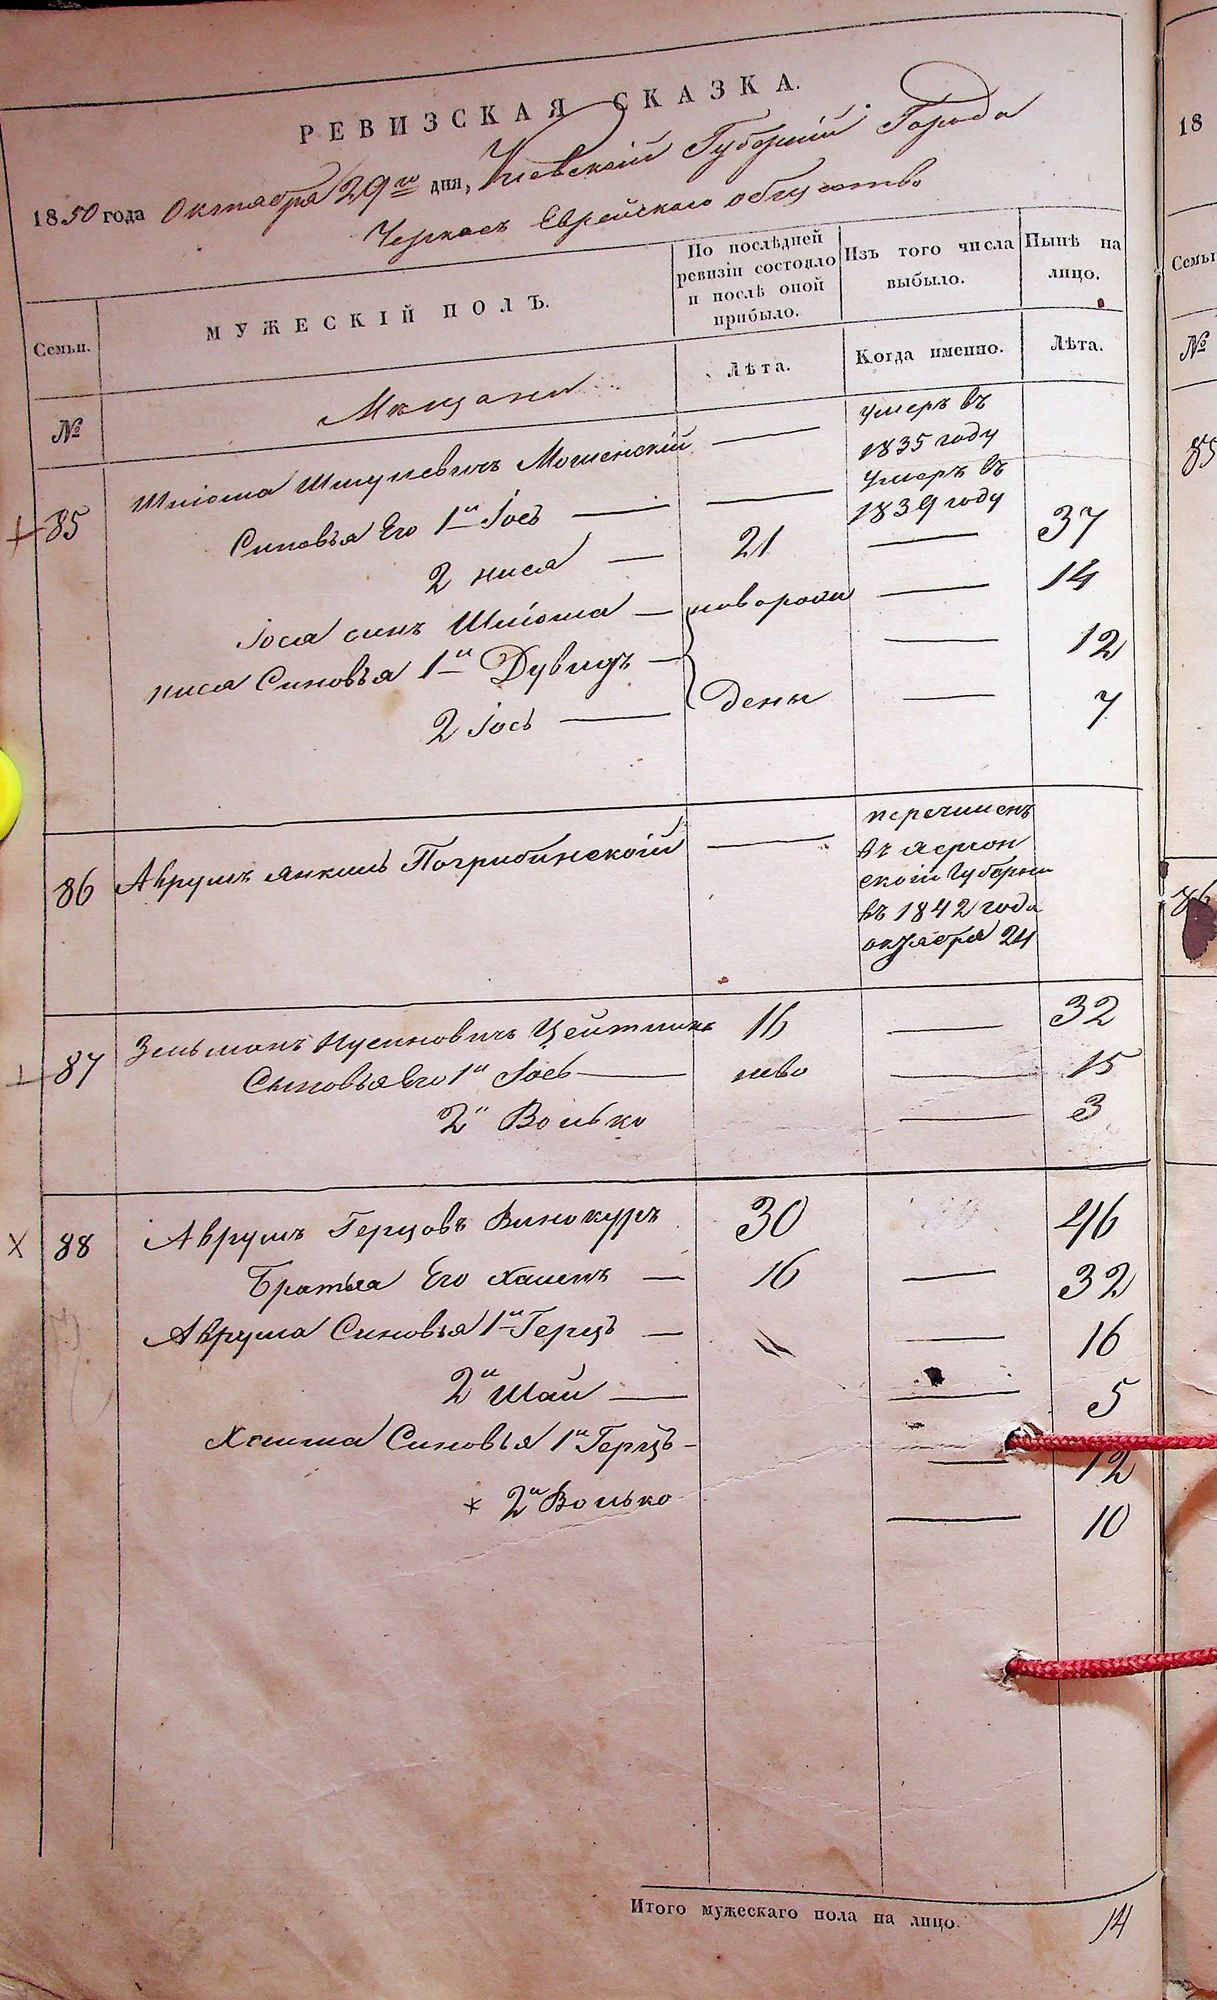 РЕВИЗСКАЯ СКАЗКА.
1850 года Октября 29го дня, Киевской Губернии Города
Черкас Еврейскаго общества
Семьи.
МУЖЕСКІЙ ПОЛЪ.
По послѣдней ревизіи состояло и послѣ оной прибыло.
Изъ того числа выбыло.
Нынѣ на лицо.
№
Мещани
Лѣта.
Когда именно.
Лѣта.
85 Шліома Шмулевичъ Мошенскій — умеръ въ 1835 году
Синовья Его 1й Іось — — умеръ въ 1839 году
2 Ниса — 21 — 37
Іося синъ Шліома — новорожи — 14
Ниса Синовья 1й Дувидъ — — 12
2 Іось — дены — 7
86 Аврумъ Янкель Погрибинский —
перечислен
въ Херсон
ской Губерни
въ 1842 года
октября 24
87 Зельманъ Нусиновичъ Цейтлинъ 16 — 32
Сыновья Его 1й Іось — ново — 15
2й Волько — 3
х 88 Аврумъ Герцовъ Винокуръ 30 46
Братья Его Хаимъ — 16 — 32
Аврума Синовья 1й Герцъ — — 16
2й Шаи — — 5
Хаима Синовья 1й Герцъ - — 12
* 2й Волько — 10
Итого мужескаго пола на лицо. 14
18
Семьи
№
85
86